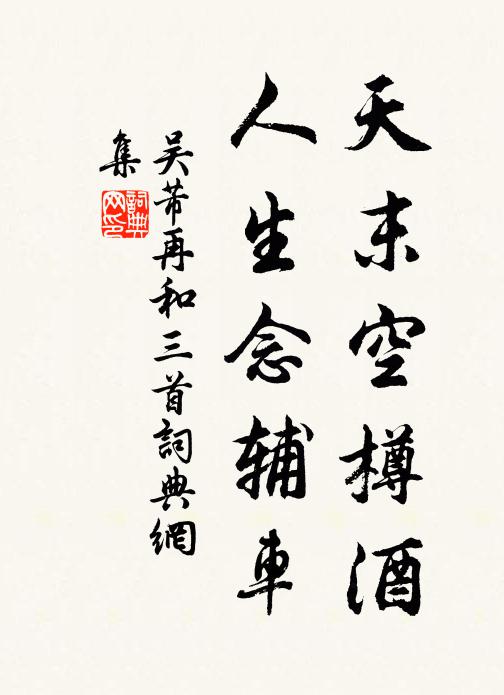 天末空樽酒
人生念辅車
吴芾再和三首詞典網
集
詞典网印